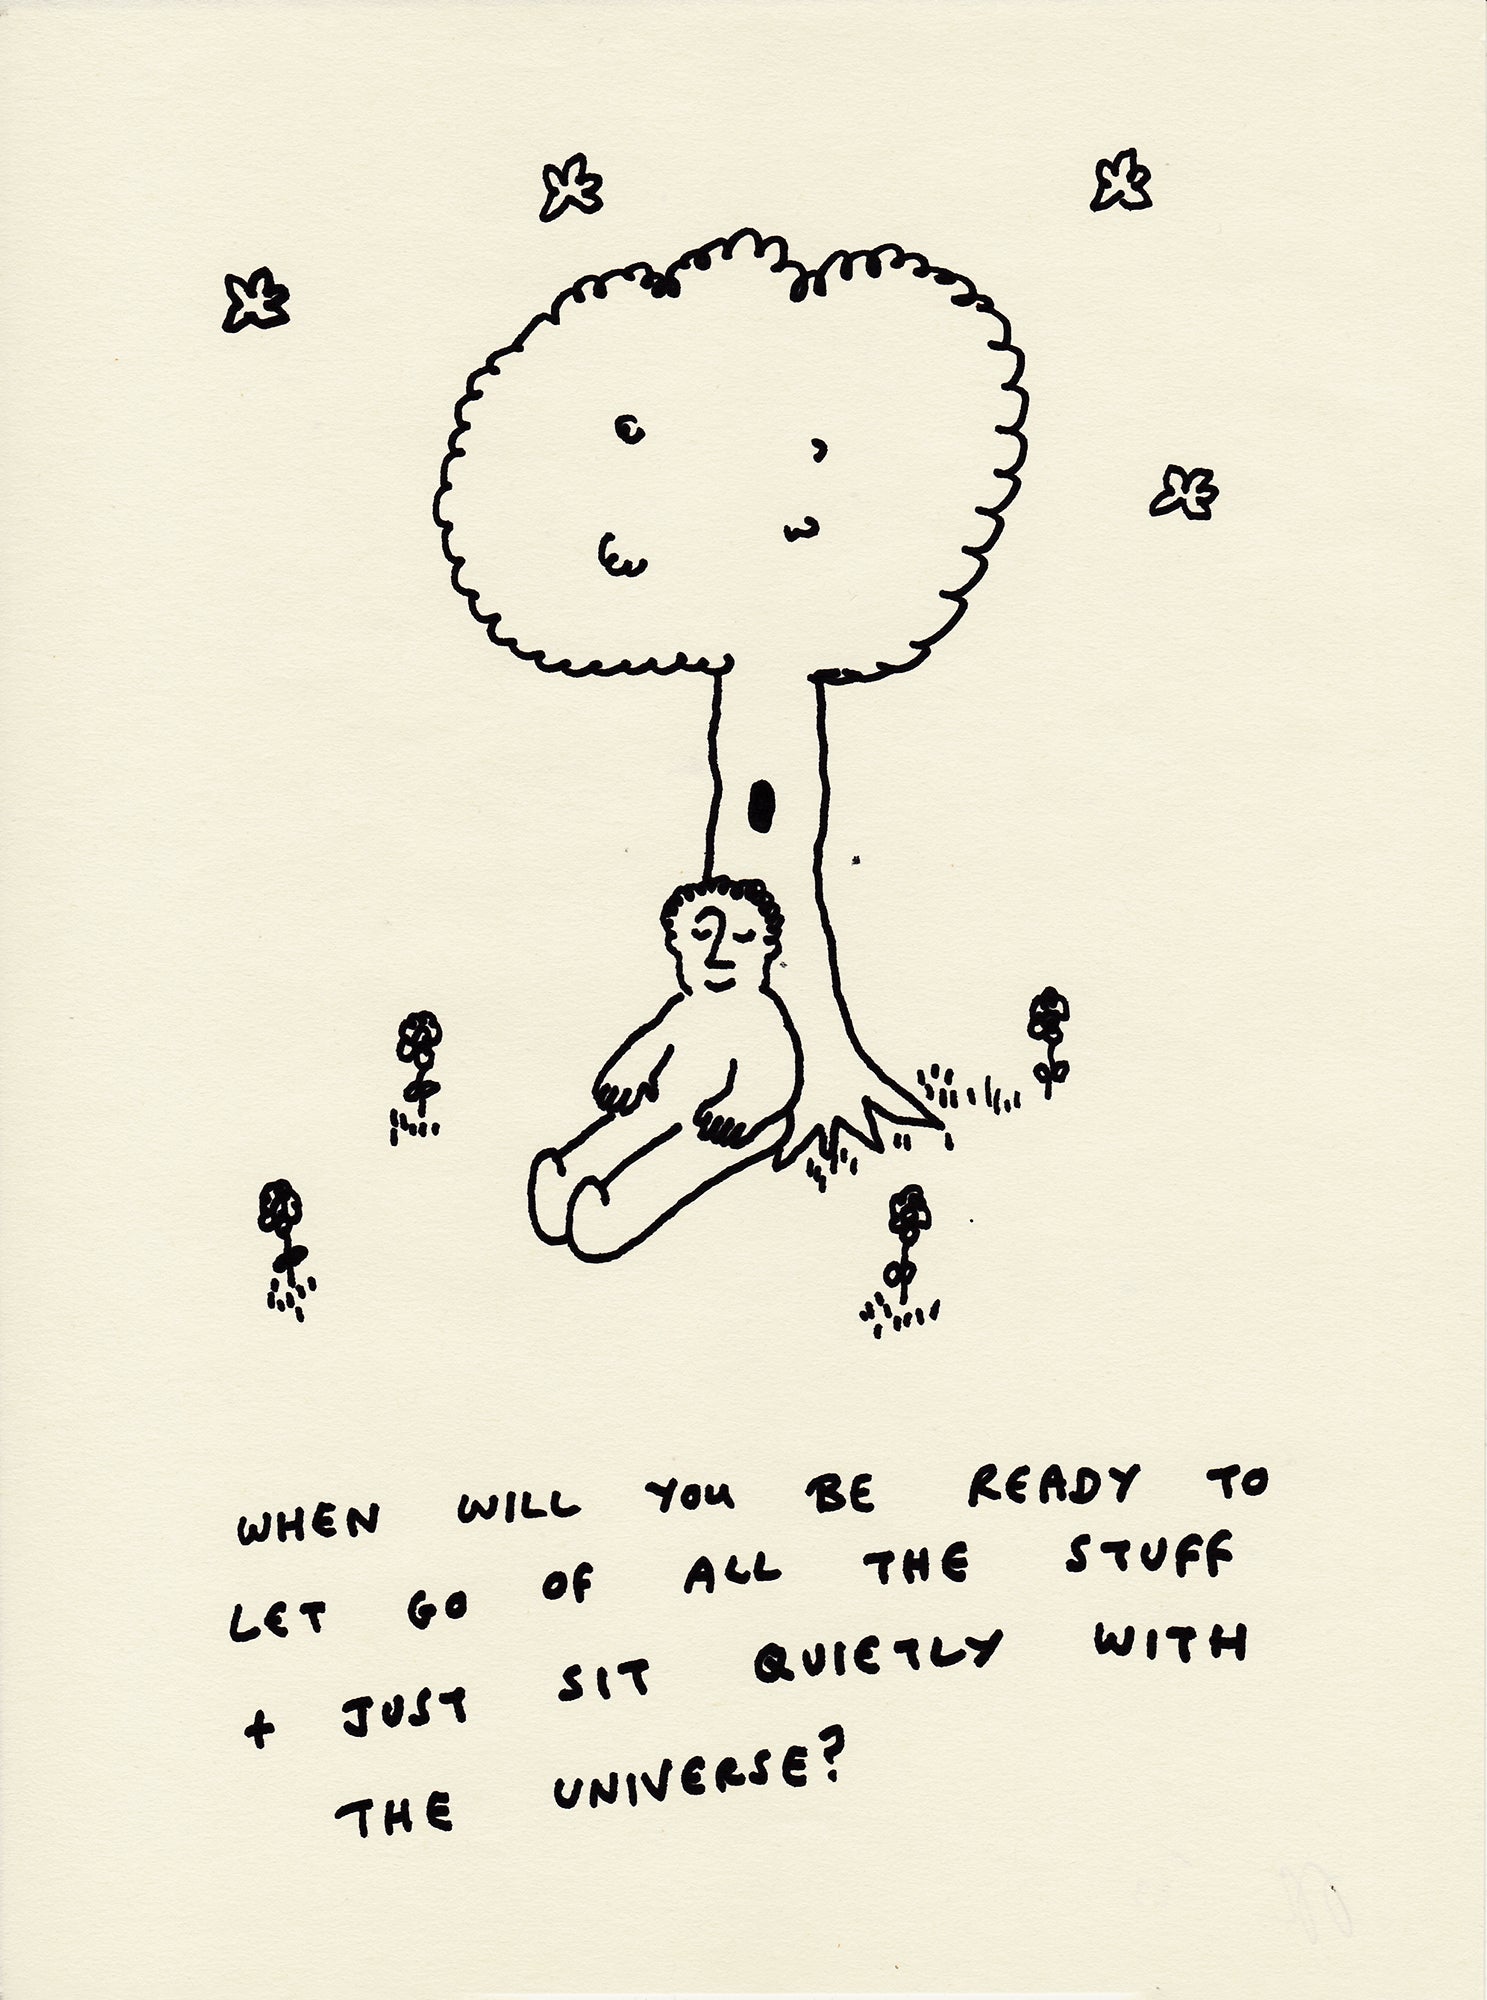 WHEN WILL YOU BE READY TO
LET GO OF ALL THE STUFF
+ JUST SIT QUIETLY WITH
THE UNIVERSE?